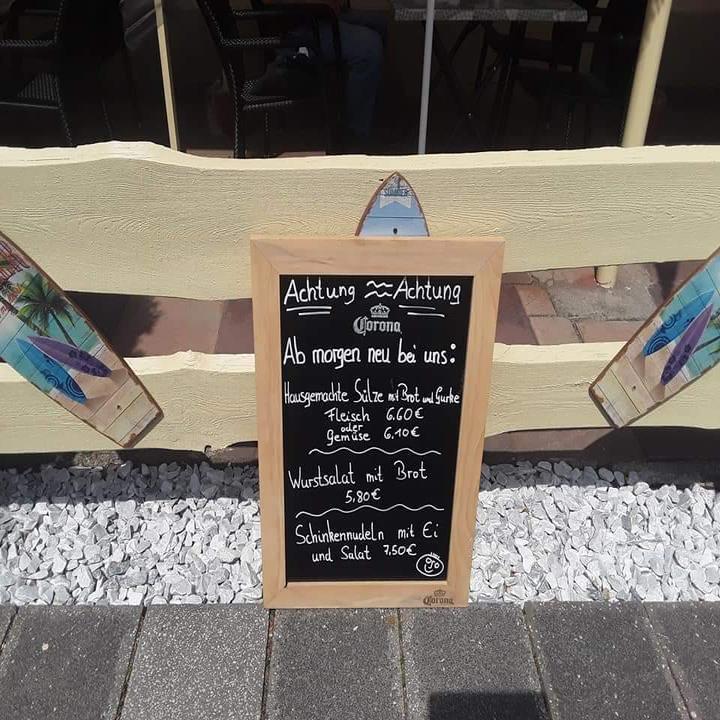 Achtung ≈ Achtung
Corona
Ab morgen neu bei uns:
Hausgemachte Sülze mit Brot und Gurke
Fleisch 6,60€
oder
Gemüse 6,10€
Wurstsalat mit Brot
5,80€
Schinkennudeln mit Ei
und Salat 7,50€
Corona